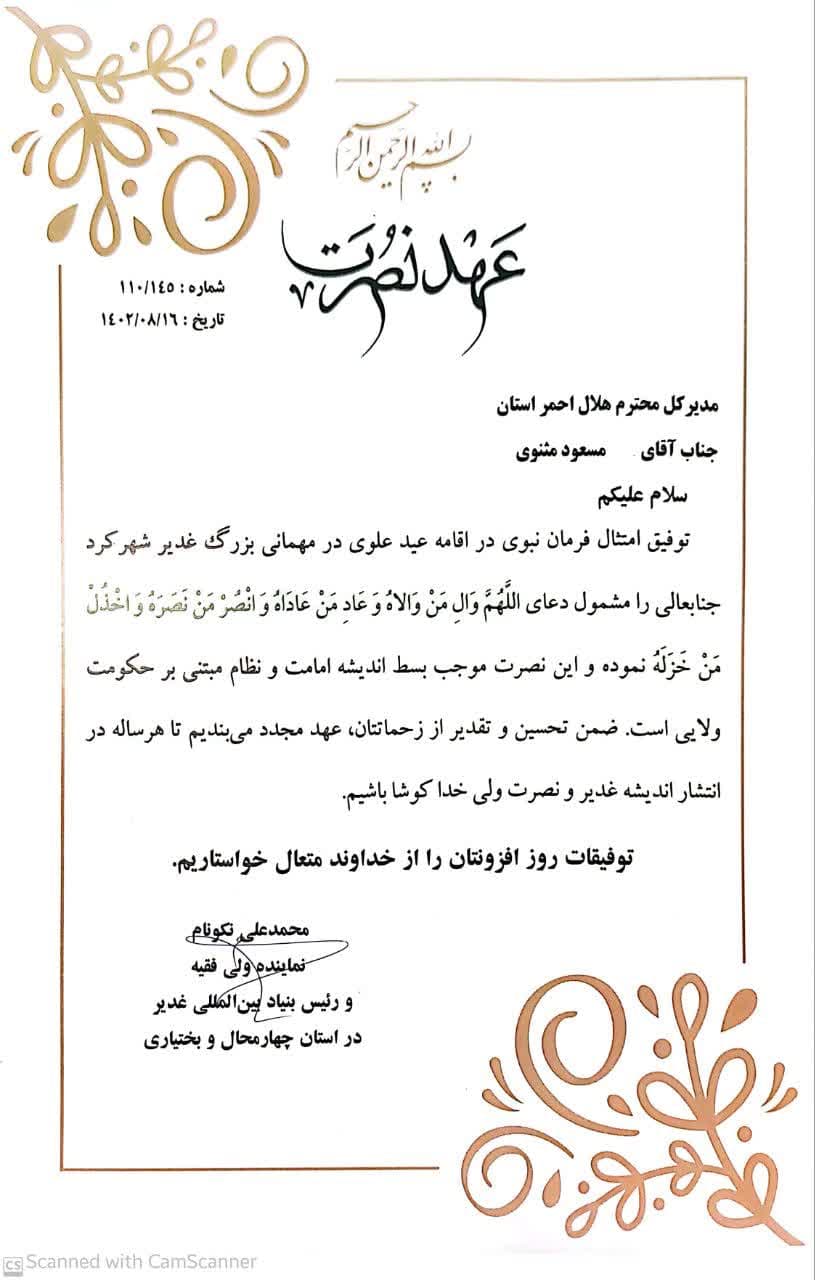 بسم الله الرحمن الرحیم
عهد نصرت
شماره : ١١٠/١٤٥
تاریخ : ١٤٠٢/٠٨/١٦
مدیرکل محترم هلال احمر استان
جناب آقای مسعود مثنوی
سلام علیکم
توفیق امتثال فرمان نبوی در اقامه عید علوی در مهمانی بزرگ غدیر شهرکرد
جنابعالی را مشمول دعای اللَّهُمَّ وَالِ مَنْ وَالاهُ وَ عَادِ مَنْ عَادَاهُ وَ انْصُرْ مَنْ نَصَرَهُ وَ اخْذُلْ
مَنْ خَزَلَهُ نموده و این نصرت موجب بسط اندیشه امامت و نظام مبتنی بر حکومت
ولایی است. ضمن تحسین و تقدیر از زحماتتان، عهد مجدد می‌بندیم تا هرساله در
انتشار اندیشه غدیر و نصرت ولی خدا کوشا باشیم.
توفیقات روز افزونتان را از خداوند متعال خواستاریم.
محمدعلی نکونام
نماینده ولی فقیه
و رئیس بنیاد بین‌المللی غدیر
در استان چهارمحال و بختیاری
CS Scanned with CamScanner